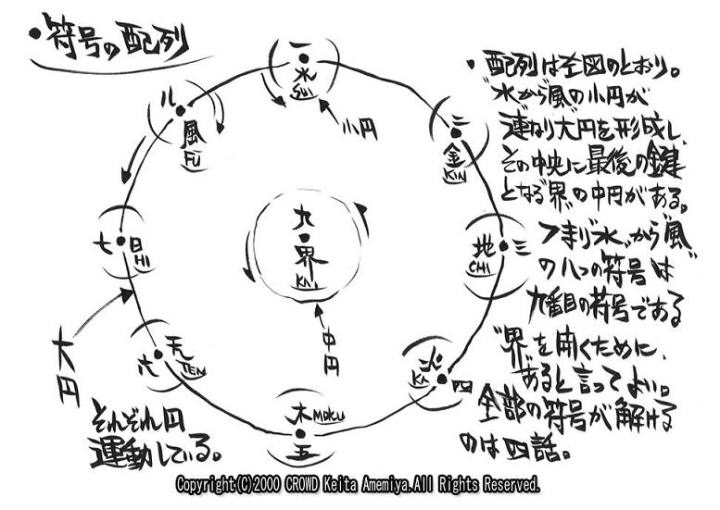 ・符号の配列
一
・水
SUI
小円
二
金
KIN
三
地
CHI
四
火
KA
木 MOKU
五
六
天
TEN
七
日
HI
八
風
FU
九
界
KAI
中円
大円
それぞれ円
運動している。
・配列は左図のとおり。
"水から風の小円が
連なり大円を形成し、
その中央に最後の鍵
となる"界"の中円がある。
つまり"水"から"風"
の八つの符号は
九番目の符号である
"界"を開くために、
あると言ってよい。
全部の符号が解ける
のは四話。
Copyright(C)2000 CROWD Keita Amemiya.All Rights Reserved.